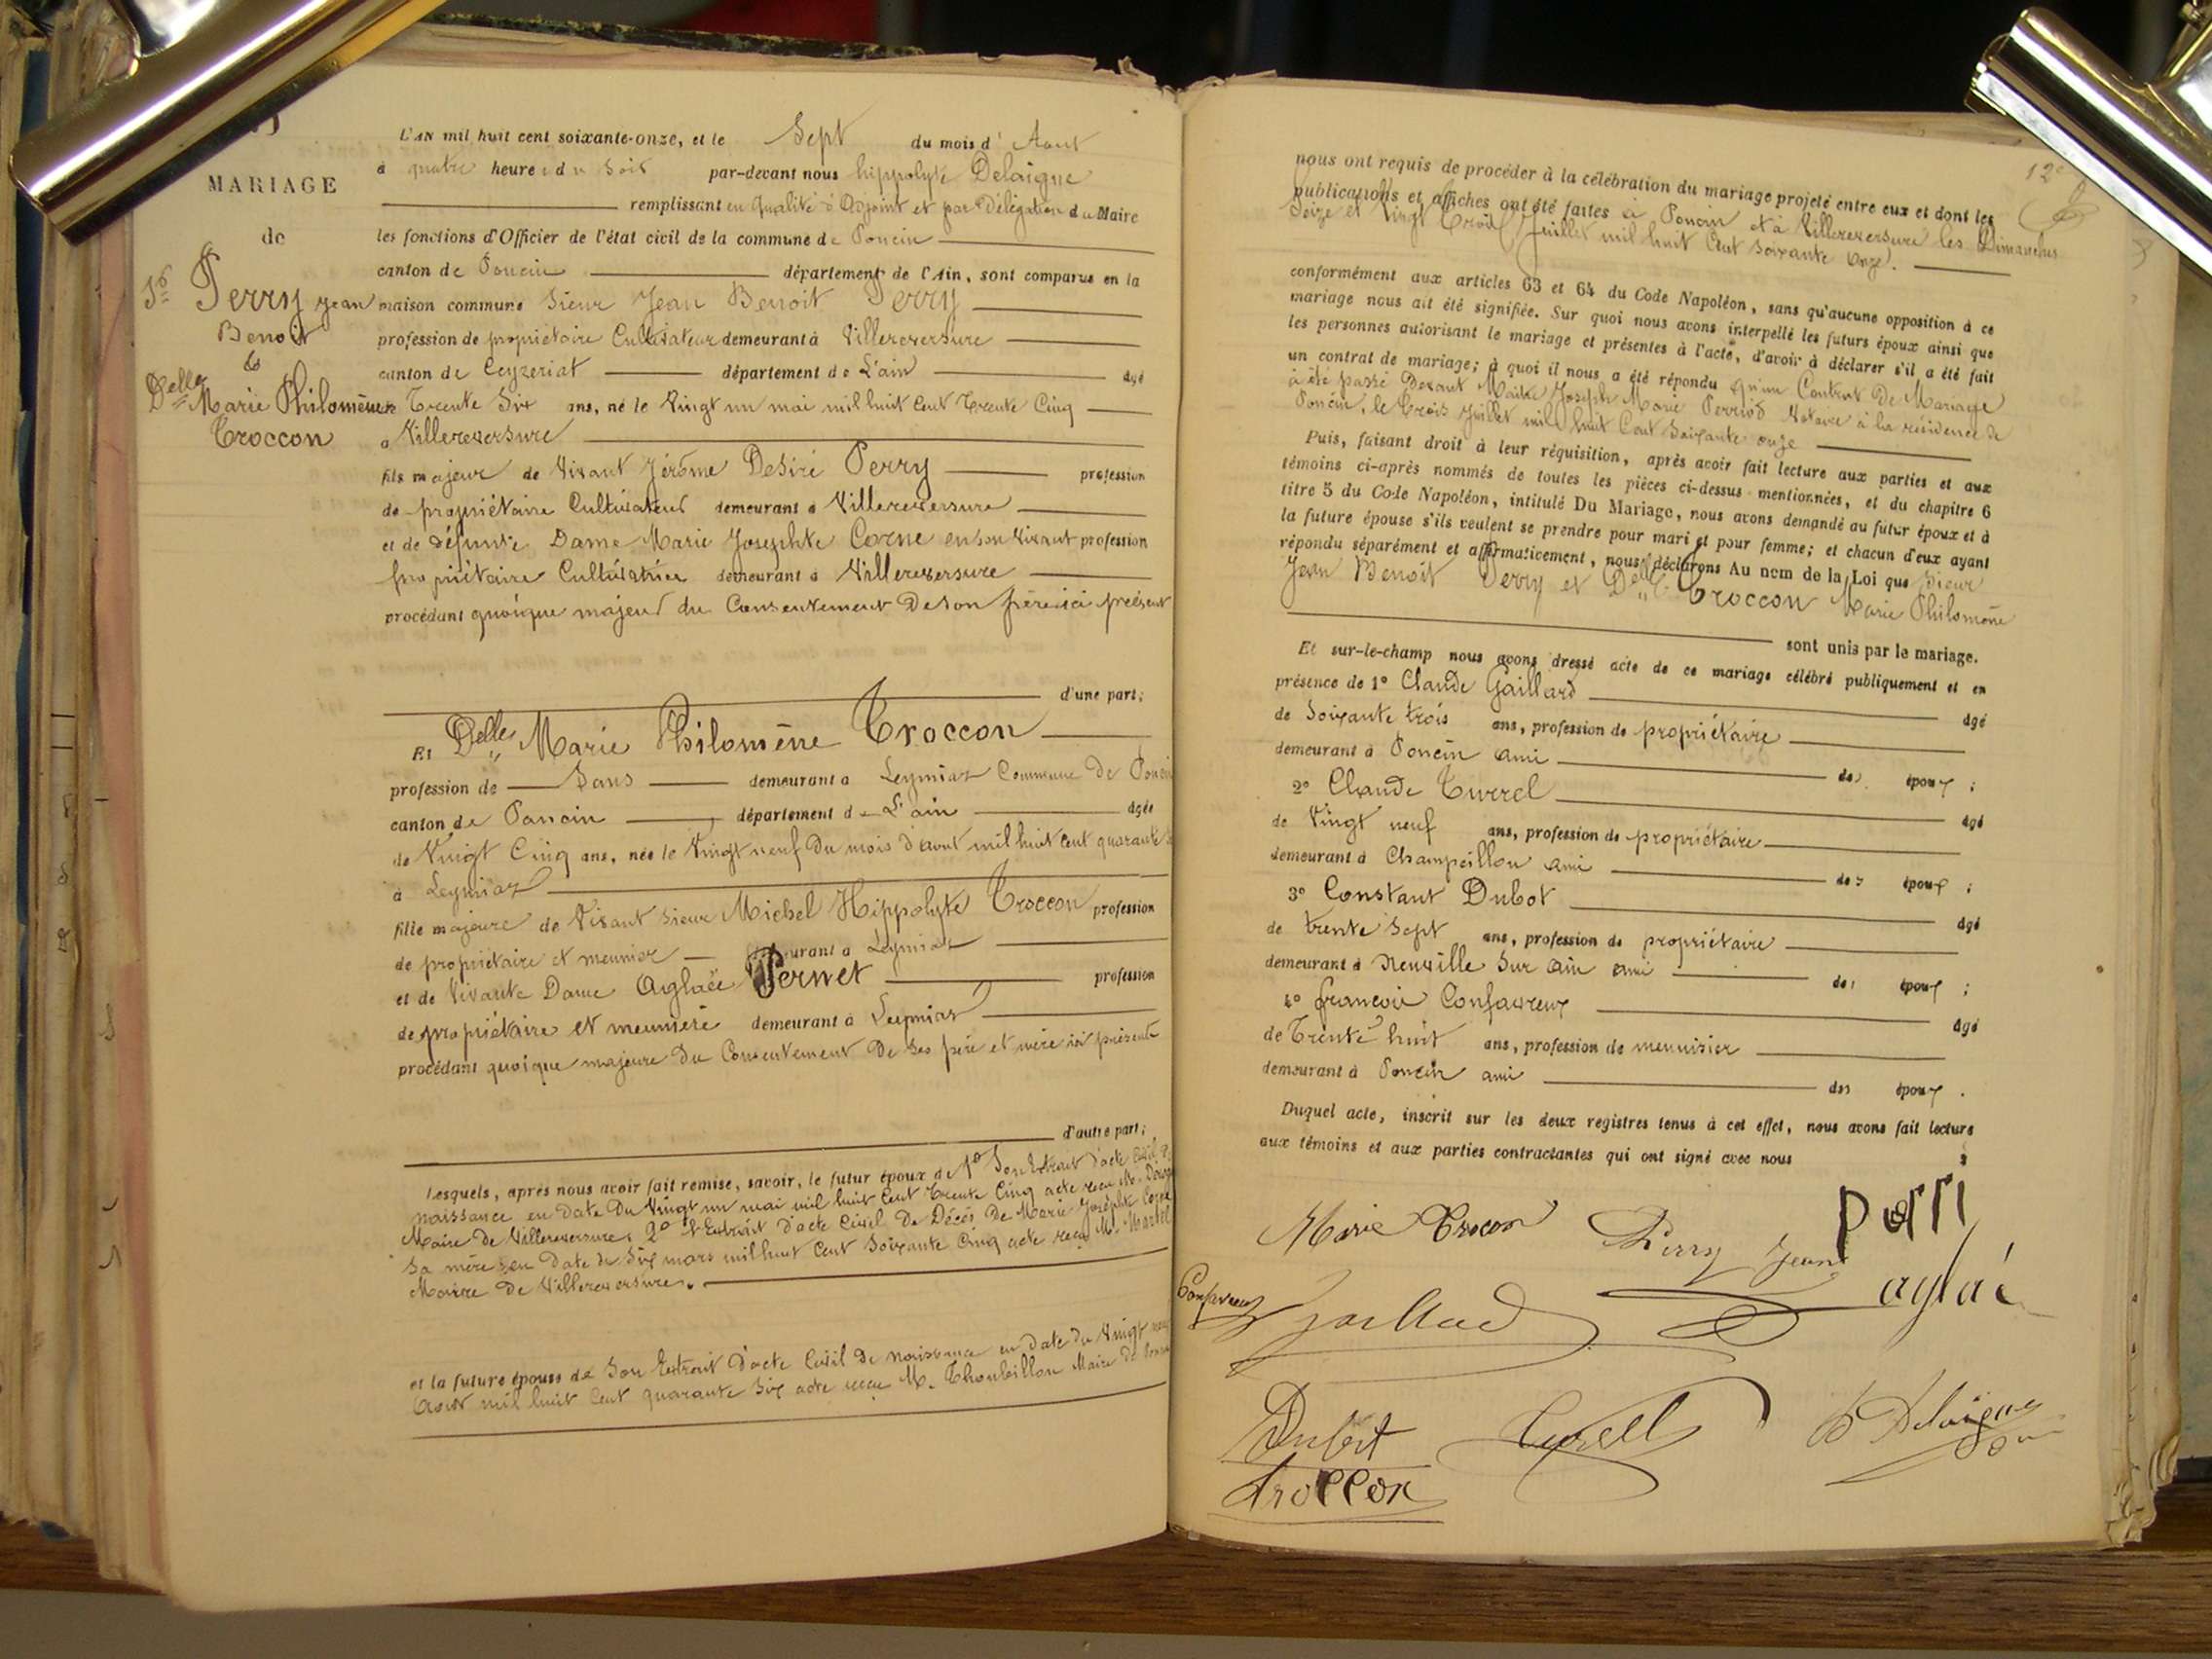 MARIAGE
de
Sr Perry Jean
Benoit
&
Delle Marie Philomène
Troccon
L'AN mil huit cent soixante-onze, et le Sept du mois d' Aout
à quatre heures du Soir par-devant nous hippolyte Delaigue
remplissant en qualité d'Adjoint et par Délégation du Maire
les fonctions d'Officier de l'état civil de la commune de Poncin
canton de Poncin département de l'Ain, sont comparus en la
maison commune Sieur Jean Benoit Perry
profession de propriétaire Cultivateur demeurant à Villereversure
canton de Ceyzeriat département de L'ain âgé
de Trente Six ans, né le Vingt un mai mil huit Cent Trente Cinq
à Villereversure
fils majeur de Vivant Jérôme Desiré Perry profession
de propriétaire Cultivateur demeurant à Villereversure
et de défunte Dame Marie Josephte Corne en son Vivant profession
propriétaire Cultivatrice demeurant à Villereversure
procédant quoique majeur du Consentement De son père ici présent
d'une part;
Et Delle Marie Philomène Troccon
profession de Sans demeurant à Leymiat Commune de Poncin
canton de Poncin département de L'ain âgée
de Vingt Cinq ans, née le Vingt neuf Du mois d'aout mil huit Cent quarante
à Leymiat
fille majeure de Vivant Sieur Michel Hippolyte Troccon profession
de propriétaire et meunier demeurant à Leymiat
et de Vivante Dame Aglaée Pernet profession
de propriétaire et meunière demeurant à Leymiat
procédant quoique majeure Du Consentement De Ses père et mère ici présents
d'autre part;
Lesquels, après nous avoir fait remise, savoir, le futur époux de 1º Son Extrait d'acte Civil de
naissance en date Du Vingt un mai mil huit Cent Trente Cinq acte reçu M.
Maire de Villereversure, 2º L'Extrait d'acte Civil De Décès De Marie Josephte Corne
Sa mère en Date du Six mars mil huit Cent Soixante Cinq acte reçu M. Martel
Maire De Villereversure.
et la future épouse de Son Extrait d'acte Civil De naissance en date du Vingt neuf
Aout mil huit Cent quarante Six acte reçu M. Thoubillon Maire de Poncin
12e
nous ont requis de procéder à la célébration du mariage projeté entre eux et dont les
publications et affiches ont été faites à Poncin et à Villereversure les Dimanches
Seize et Vingt Trois Juillet mil huit Cent Soixante Onze.
conformément aux articles 63 et 64 du Code Napoléon, sans qu'aucune opposition à ce
mariage nous ait été signifiée. Sur quoi nous avons interpellé les futurs époux ainsi que
les personnes autorisant le mariage et présentes à l'acte, d'avoir à déclarer s'il a été fait
un contrat de mariage; à quoi il nous a été répondu qu'un Contrat De Mariage
à été passé Devant Maître Joseph Marie Perriod Notaire à la résidence de
Poncin, le Trois Juillet mil huit Cent Soixante onze
Puis, faisant droit à leur réquisition, après avoir fait lecture aux parties et aux
témoins ci-après nommés de toutes les pièces ci-dessus mentionnées, et du chapitre 6
titre 5 du Code Napoléon, intitulé Du Mariage, nous avons demandé au futur époux et à
la future épouse s'ils veulent se prendre pour mari et pour femme; et chacun d'eux ayant
répondu séparément et affirmativement, nous déclarons Au nom de la Loi que Sieur
Jean Benoit Perry et Delle Troccon Marie Philomène
sont unis par le mariage.
Et sur-le-champ nous avons dressé acte de ce mariage célébré publiquement et en
présence de 1º Claude Gaillard âgé
de Soixante trois ans, profession de propriétaire
demeurant à Poncin ami des époux ;
2º Claude Turrel âgé
de Vingt neuf ans, profession de propriétaire
demeurant à Champeillon ami des époux ;
3º Constant Dubot âgé
de trente Sept ans, profession de propriétaire
demeurant à Neuville Sur Ain ami des époux ;
4º françois Confavreux âgé
de Trente huit ans, profession de menuisier
demeurant à Poncin ami des époux .
Duquel acte, inscrit sur les deux registres tenus à cet effet, nous avons fait lecture
aux témoins et aux parties contractantes qui ont signé avec nous
Marie Trocon Perry Jean
Confavreux Gaillard aglaé
Dubot Turell h Delaigue
troccon